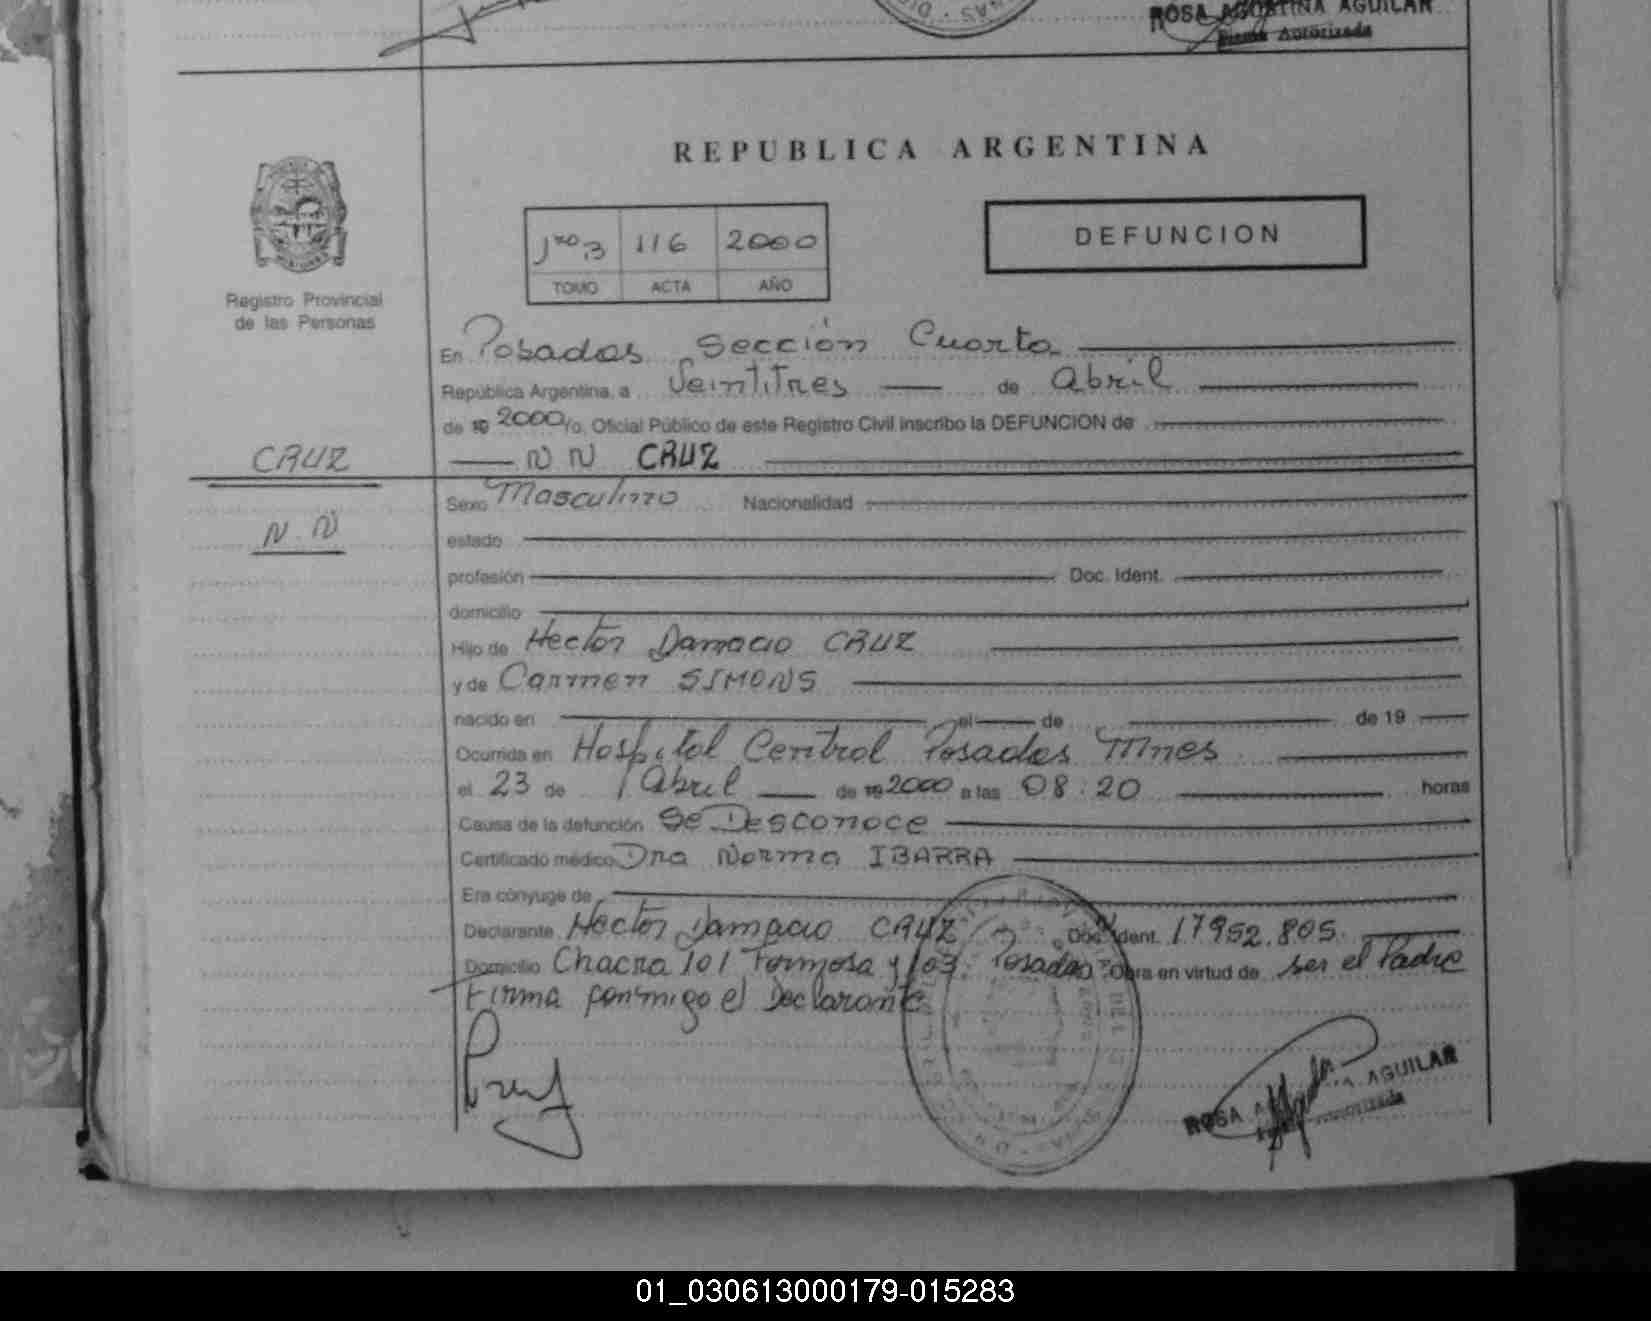 ROSA AGOSTINA AGUILAR
Firma Autorizada
REPUBLICA ARGENTINA
Jro 3 116 2000
TOMO ACTA AÑO
DEFUNCION
Registro Provincial
de las Personas
En Posadas Sección Cuarta
República Argentina, a Veintitres de Abril
de 19 2000 yo, Oficial Público de este Registro Civil inscribo la DEFUNCION de
CRUZ
N N CRUZ
N.N
Sexo Masculino Nacionalidad
estado
profesión Doc. Ident.
domicilio
Hijo de Hector Damacio CRUZ
y de Carmen SIMONS
nacido en el de de 19
Ocurrida en Hospital Central Posadas Mnes
el 23 de Abril de 19 2000 a las 08:20 horas
Causa de la defunción Se Desconoce
Certificado médico Dra Norma IBARRA
Era cónyuge de
Declarante Hector Damacio CRUZ Doc. Ident. 17952.805
Domicilio Chacra 101 Formosa y 103. Posadas Obra en virtud de ser el Padre
Firma conmigo el Declarante
ROSA A AGUILAR
01_030613000179-015283